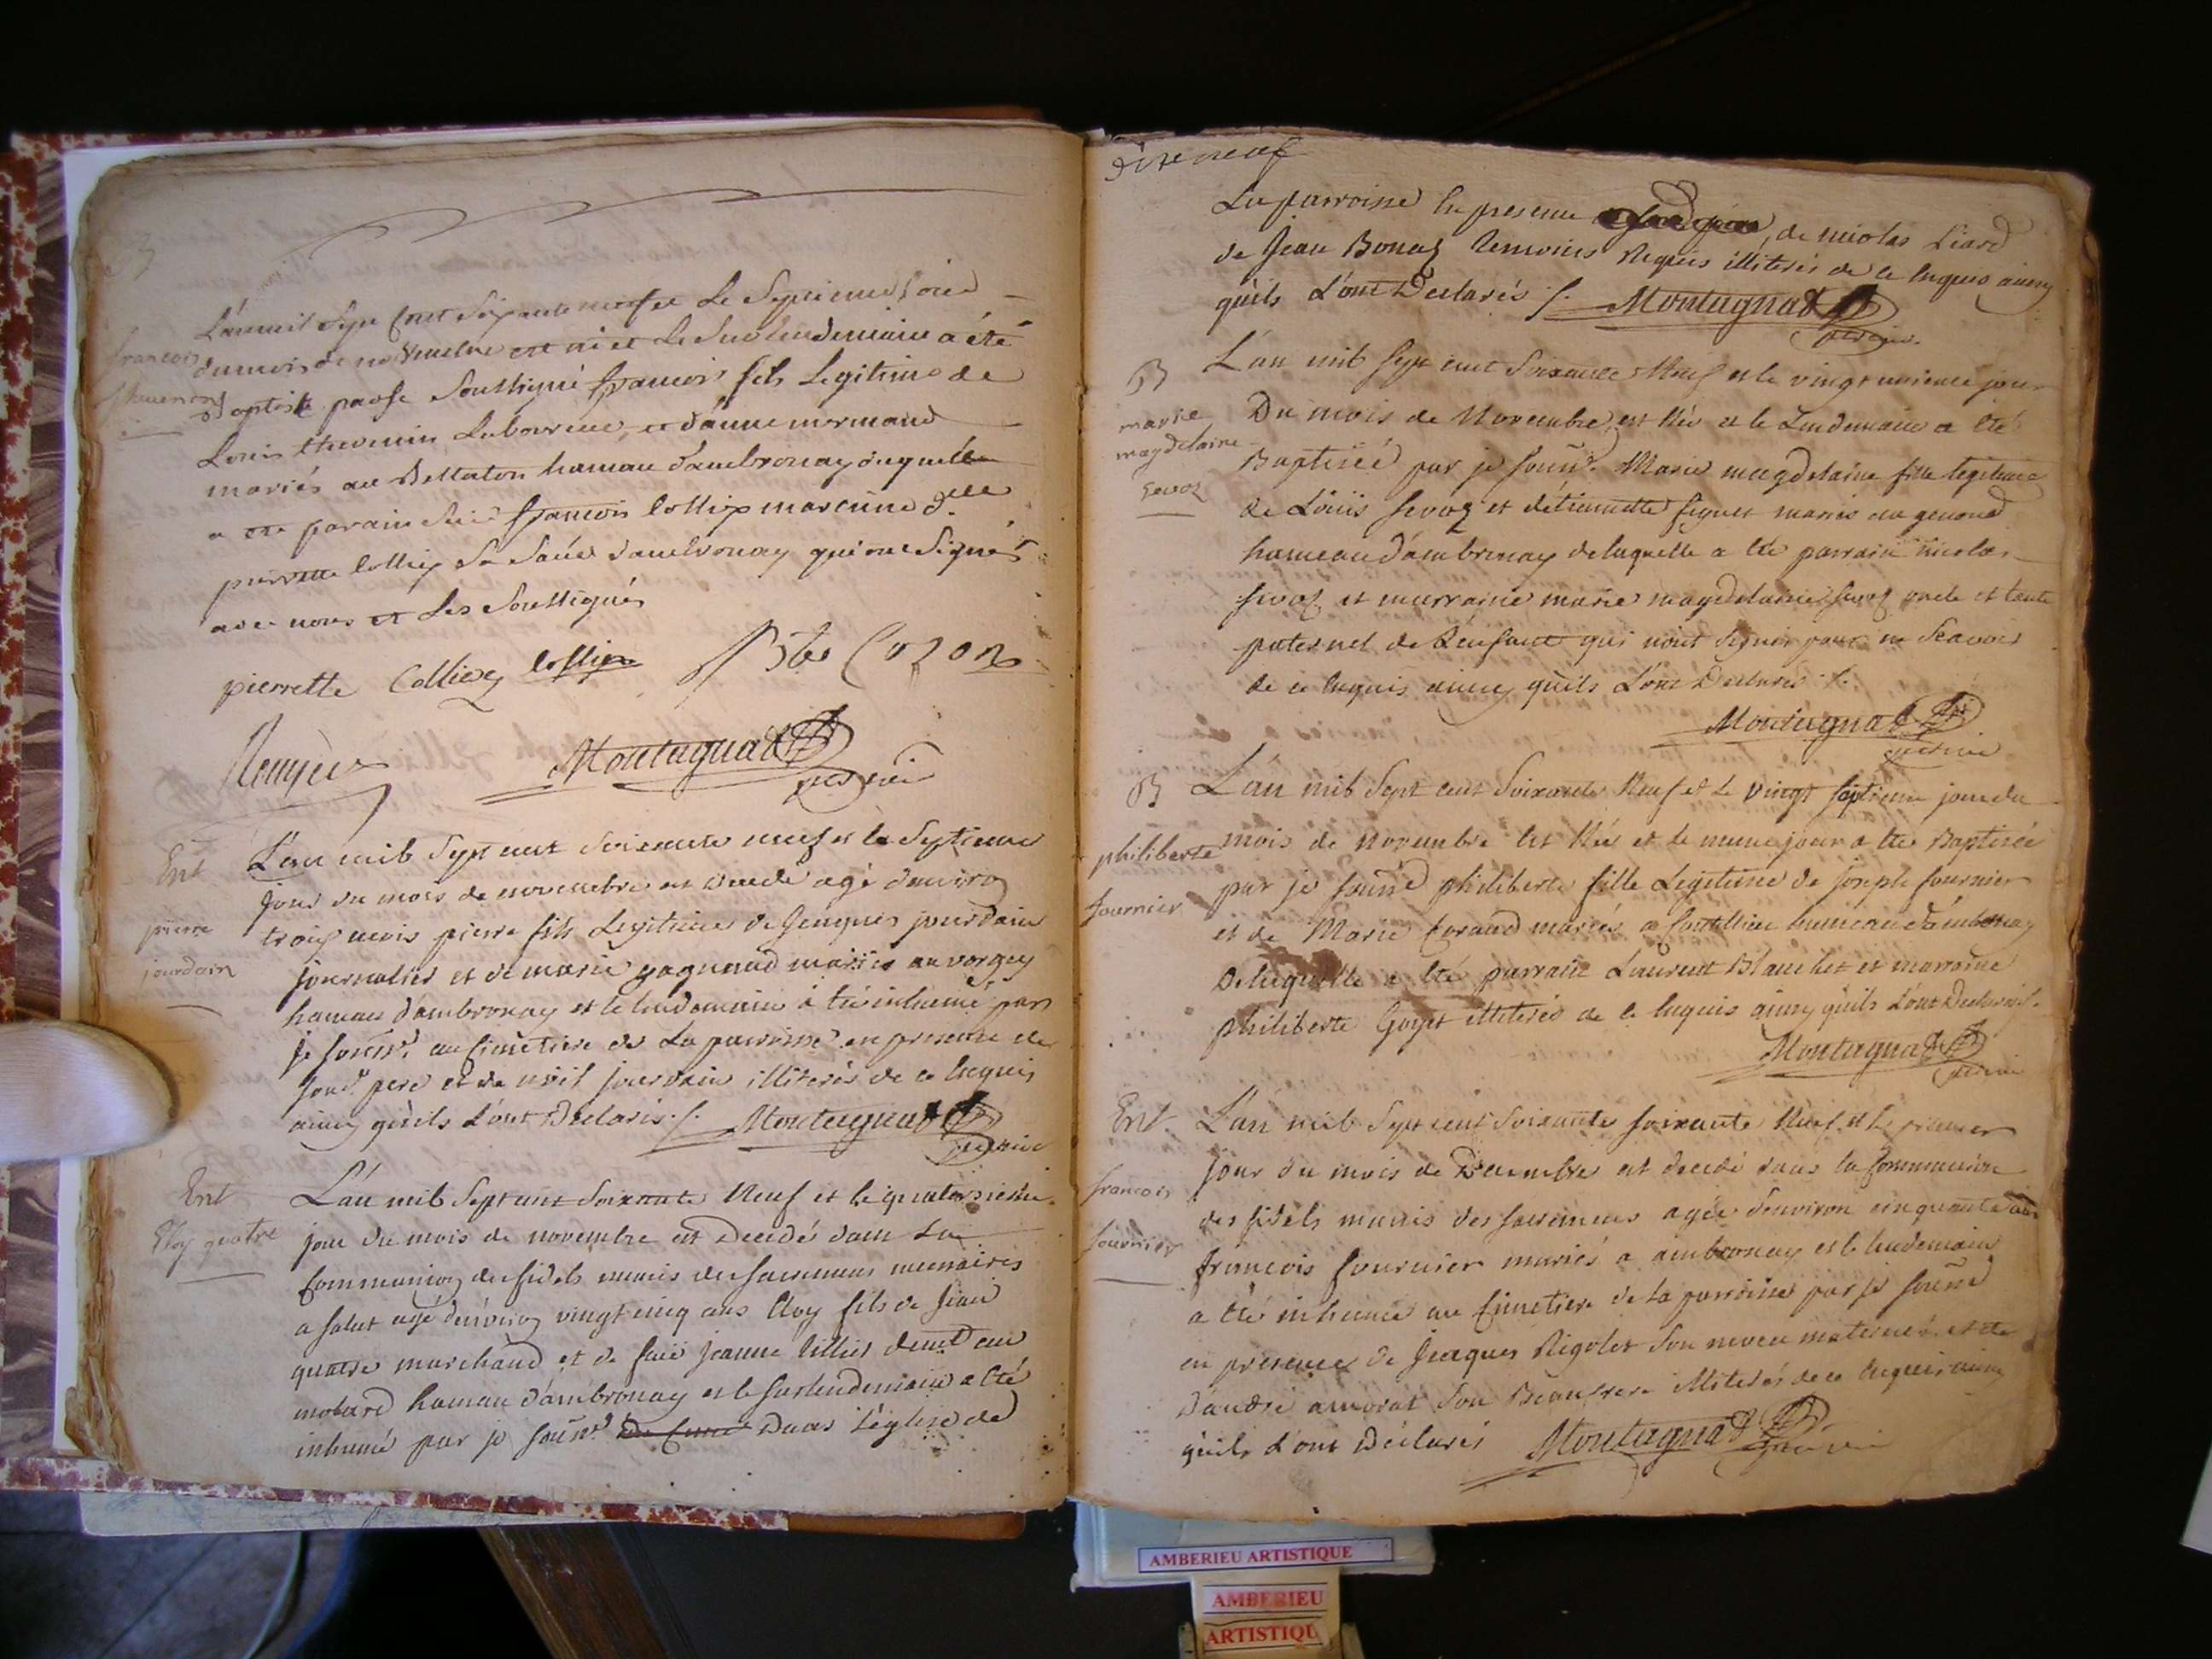 B
françois
thevenin
L'an mil sept cent soixante neuf et le septieme jour
du mois de novembre est né et le surlendemain a été
Baptisé par je soussigné françois fils Legitime de
Louis thevenin Laboureur et d'anne mermand
mariés au Bellaton hameau d'ambronay duquel
a été parain sieur françois Colliex maraine d.lle
pierrette Colliex sa sœur d'ambronay qui ont signés
avec nous et les soussignés
pierrette Colliex Colliex
Montagnat
Ent
pierre
jourdain
L'an mil sept cent soixante neuf et le septieme
jour du mois de novembre est decedé agé d'environ
trois mois pierre fils Legitime de Jacques jourdain
journalier et de marie gagneud mariés au vorgey
hameau d'ambronay et le lendemain a été inhumé par
je sous.né au Cimetiere de La parroisse en presence de
son d. pere et de jourdain illiterés de ce Enquis
ainsy qu'ils L'ont Declarés ./. Montagnat
Ent
Eloy quatre
L'an mil Sept cent Soixante Neuf et le quatorzieme
jour du mois de novembre est Decedé dans La
Communion des fidels munis des sacremens necessaires
a salut agé d'environ vingt cinq ans Eloy fils de Jean
quatre marchand et de jeanne tillier demt au
molard hameau d'ambronay et le surlendemain a été
inhumé par je sous.né Dans L'église de
dixneuf
La parroisse En presence de nicolas Liard
de Jean Bonaz temoins Requis illiterés de ce Enquis ainsy
qu'ils L'ont Declarés ./. Montagnat
B
marie
magdelaine
sevoz
L'an mil sept cent soixante Neuf et le vingt unieme jour
Du mois de Novembre, est Née et le Lendemain a été
Baptisée par je sous.né Marie magdelaine fille legitime
de Loüis sevoz et d'étiennette figuet mariés au genoud
hameau d'ambronay delaquelle a été parrain nicolas
sevoz et marraine marie magdelaine sevoz oncle et tante
paternel de L'enfant qui n'ont signés pour ne Scavoir
de ce Enquis ainsy qu'ils L'ont Declarés ./.
Montagnat
B
philiberte
fournier
L'an mil Sept cent Soixante Neuf et Le vingt septieme jour du
mois de novembre Est Née et le meme jour a été Baptisée
par je sous.né philiberte fille Legitime de Joseph fournier
et de Marie Coraud mariés a Coutelieu hameau d'ambronay
Delaquelle a été parrain Laurent Blanchet et marraine
philiberte Goyet illiterés de ce Enquis ainsy qu'ils L'ont Declarés ./.
Montagnat
Ent.
francois
fournier
L'an mil Sept cent Soixante soixante Neuf et le premier
jour du mois de Decembre est decedé dans la Communion
des fidels munis des sacremens agée d'environ cinquante ans
françois fournier mariés a ambronay et le lendemain
a été inhumé au Cimetiere de La parroisse par je sous.né
en presence de Jacques Rigolet son neveu maternel et de
D'andré amorat son Beaufrere illiterés de ce Enquis ainsy
qu'ils L'ont Déclarés Montagnat
AMBERIEU ARTISTIQUE
AMBERIEU
ARTISTIQU